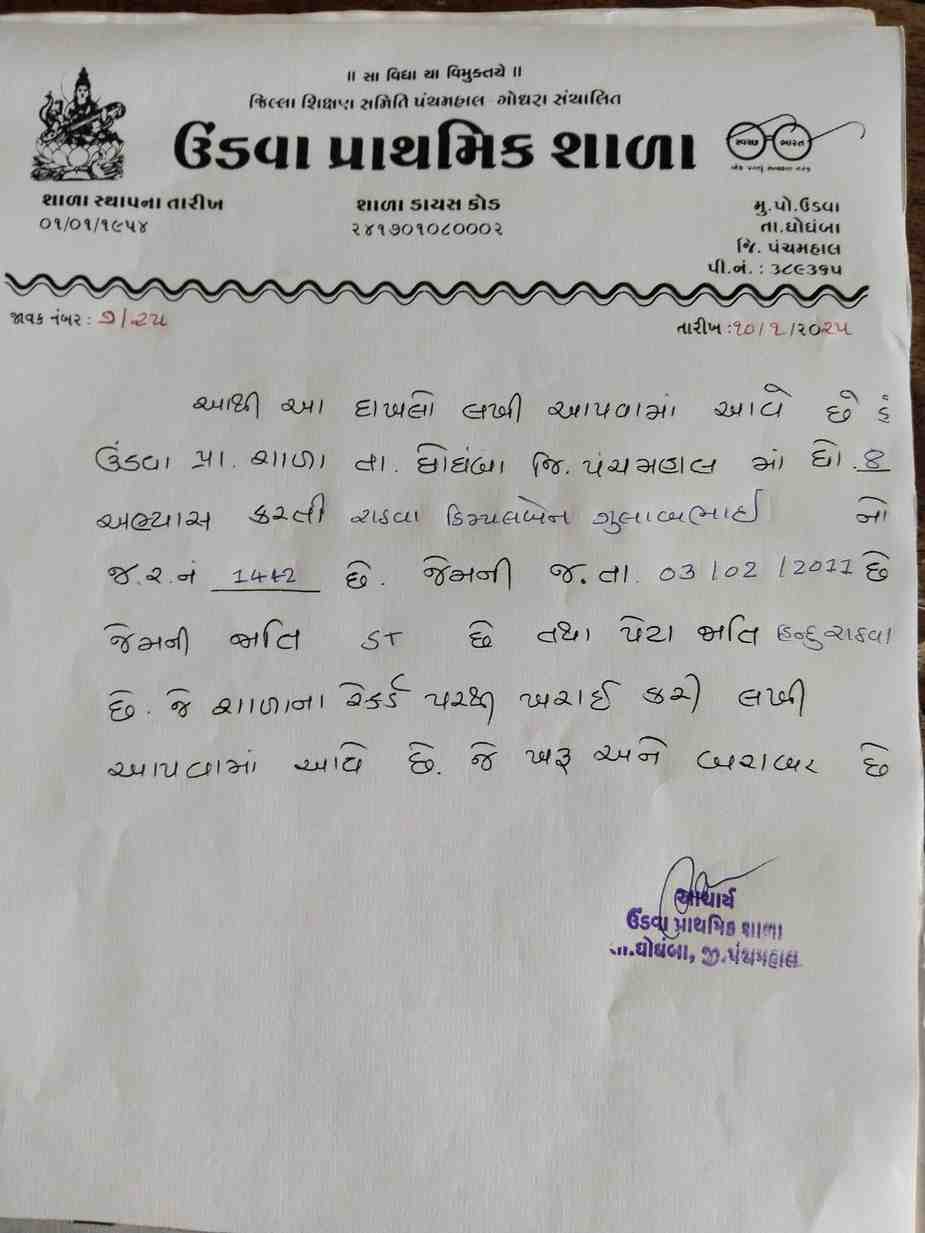 ॥ સા વિદ્યા યા વિમુક્તયે ॥
જિલ્લા શિક્ષણ સમિતિ પંચમહાલ ગોધરા સંચાલિત
ઉંડવા પ્રાથમિક શાળા
સ્વચ્છ ભારત
એક કદમ સ્વચ્છતા તરફ
શાળા સ્થાપના તારીખ
૦૧/૦૧/૧૯૫૪
શાળા ડાયસ કોડ
૨૪૧૭૦૧૦૮૦૦૦૨
મુ.પો.ઉંડવા
તા.ઘોઘંબા
જિ. પંચમહાલ
પી.નં. : ૩૮૯૩૧૫
જાવક નંબર : ૭/૨૫
તારીખ :૧૦/૧/૨૦૨૫
આથી આ દાખલો લખી આપવામાં આવે છે કે
ઉંડવા પ્રા. શાળા તા. ઘોઘંબા જિ. પંચમહાલ માં ધો. ૪
અભ્યાસ કરતી રાઠવા ડિમ્પલબેન ગુલાબભાઈ નો
જ.ર.નં 1442 છે. જેમની જ. તા. 03/02/2011 છે
જેમની જાતિ ST છે તથા પેટા જાતિ હિન્દુ રાઠવા
છે. જે શાળાના રેકર્ડ પરથી ખરાઈ કરી લખી
આપવામાં આવે છે. જે ખરૂ અને બરાબર છે
આચાર્ય
ઉંડવા પ્રાથમિક શાળા
તા.ઘોઘંબા, જી.પંચમહાલ